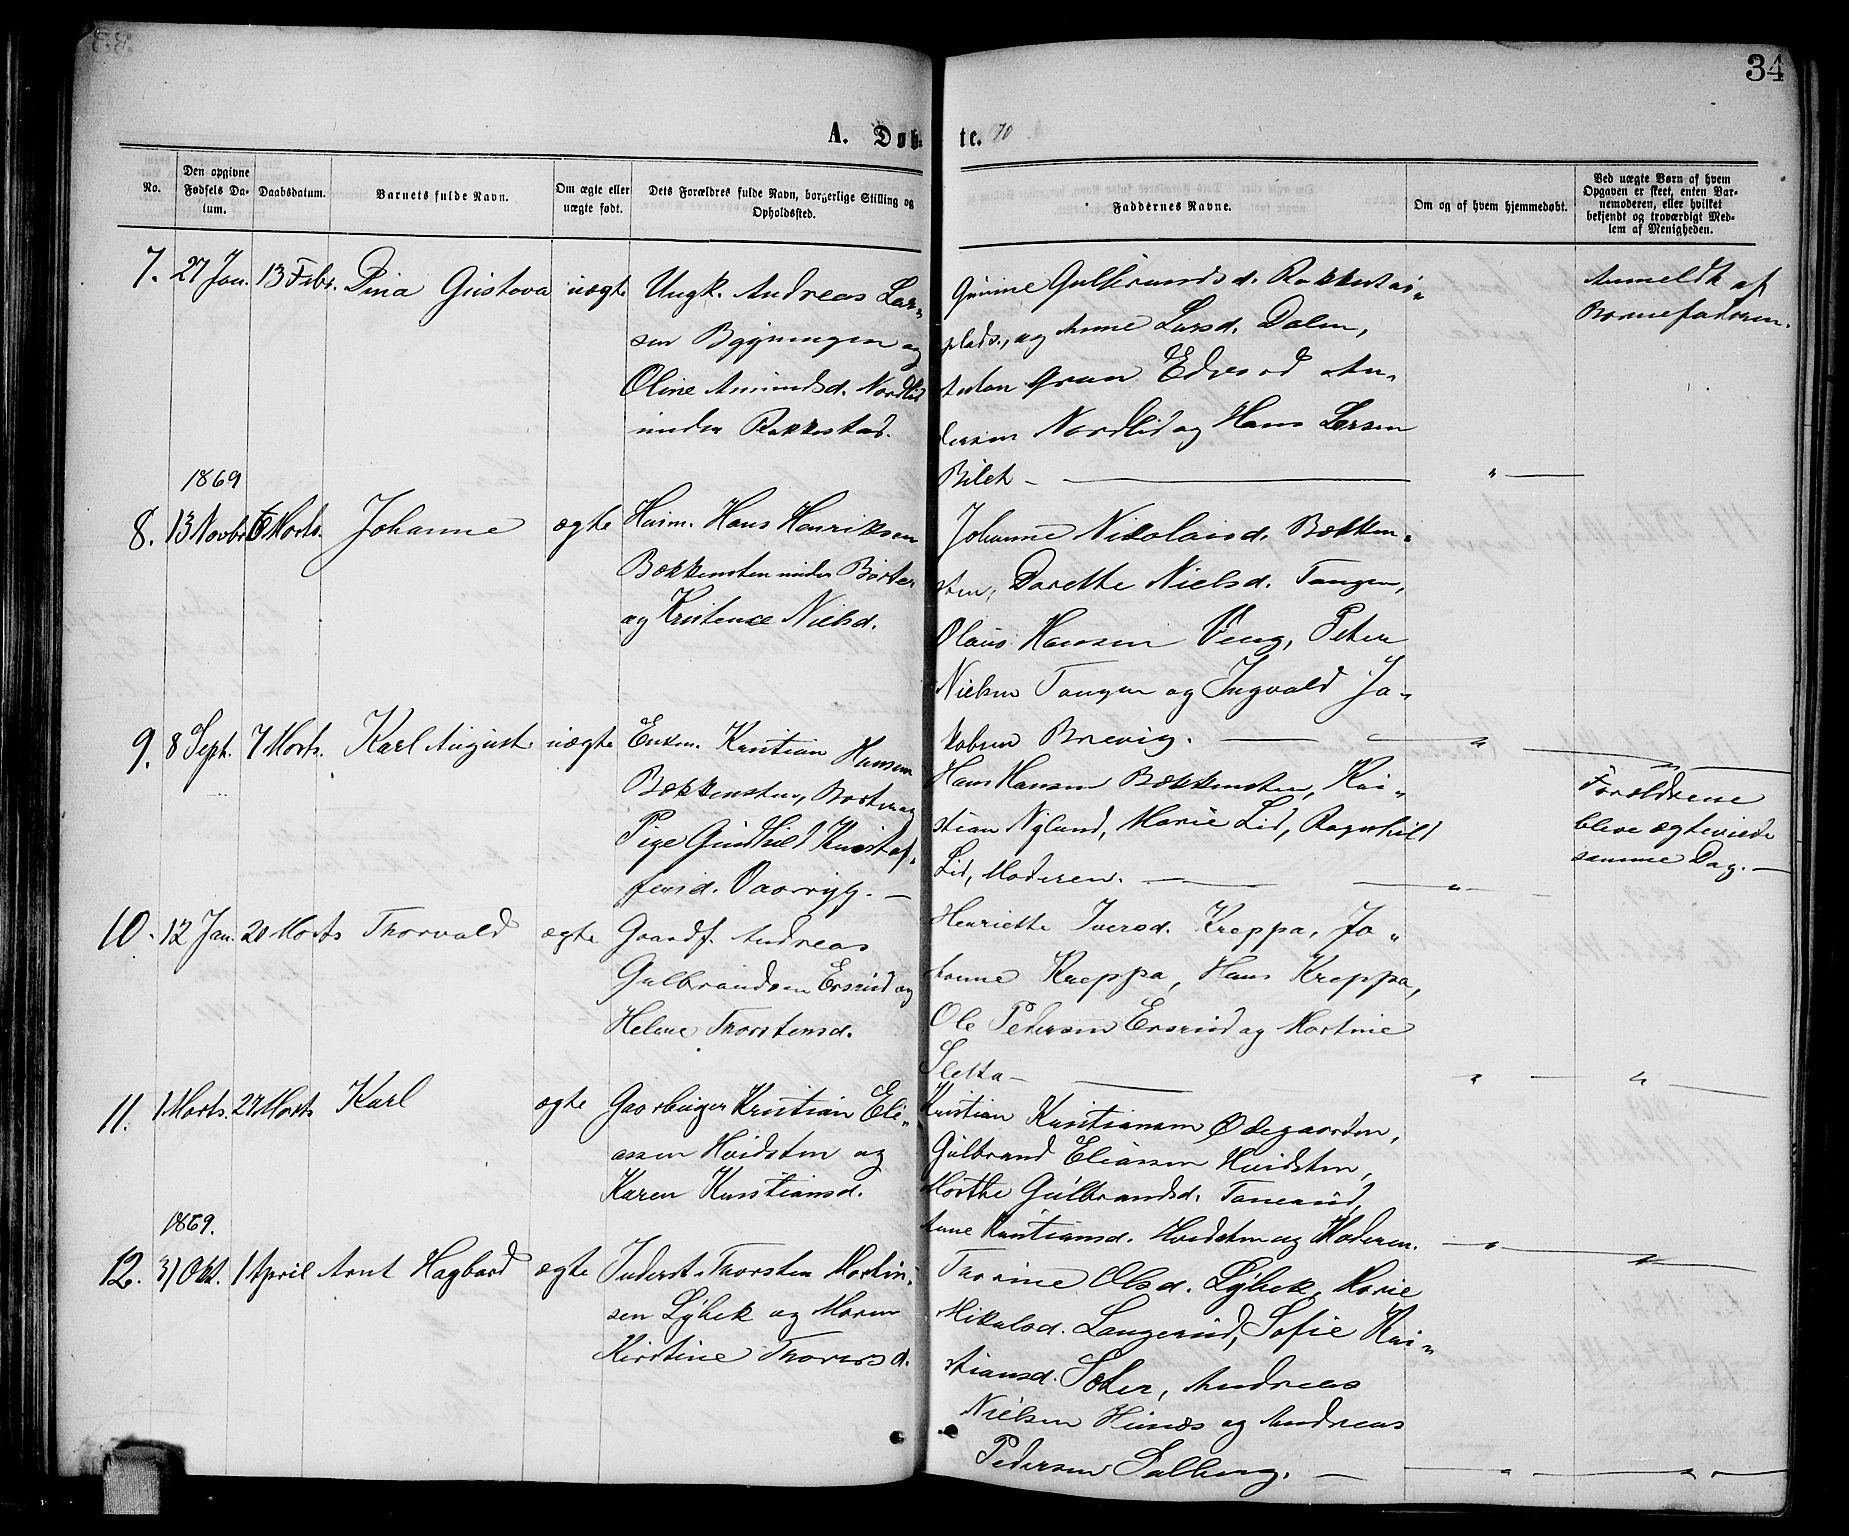 34
A. Døb-
te.
70
No.
Den opgivne Fødsels Da-
tum.
Daabsdatum.
Barnets fulde Navn.
Om ægte eller
uægte født.
Dets Forældres fulde Navn, borgerlige Stilling og
Opholdssted.
Faddernes Navne.
Om og af hvem hjemmedøbt.
Ved uægte Børn af hvem
Opgaven er skeet, enten Bar-
nemoderen, eller hvilket
bekjendt og troværdigt Med-
lem af Menigheden.
7. 27 Jan. 13 Febr. Dina Gustava uægte
Ungk. Andreas Lar-
sen Bygningen og
Oline Amundsd. Nordlid
under Rakkestad.
Gulbrandsd. Rakkestad-
plads, og Anne Larsd. Dalen,
Anton Gran Edvard An-
dersen Nordlid og Hans Larsen
Bilet —
Anmeldt af
Barnefaderen.
1869
8. 13 Novbr 6 Marts. Johanne ægte
Husm. Hans Henriksen
Bækkensten under Børter
og Kristense Nielsd.
Johanne Nikolaisd. Bækken-
sten, Dorette Nielsd. Tangen,
Olaus Hansen Veng, Peter
Nielsen Tangen og Ingvald Ja-
kobsen Brevig. —
9. 8 Sept. 7 Marts. Karl August uægte
Enkm. Kristian Hansen
Bækkensten, Børter og
Pige Gunhild Kristof-
fersd.
Hans Hansen Bækkensten, Kri-
stian Nyland, Marie Lid, Ragnhild
Lid, Moderen. —
Forældrene
bleve ægteviede
samme Dag. —
10. 12 Jan. 20 Marts Thorvald ægte
Gaardf. Andreas
Gulbrandsen Ersrud og
Helene Thorstensd.
Henriette Iversd. Kreppa, Jo-
hanne Kreppa, Hans Kreppa,
Ole Pedersen Ersrud og Martine
Sletta —
11. 1 Marts. 27 Marts Karl ægte
Gaardbruger Kristian Eli-
assen Hvidsten og
Karen Kristiansd.
Kristian Kristiansen Ødegaarden,
Gulbrand Eliassen Hvidsten,
Marthe Gulbrandsd. Tanerud,
Anne Kristiansd. Hvidsten og Moderen.
1869.
12. 31 Okt. 1 April Arnt Hagbard ægte
Inderst Thorsten Martin-
sen Lybek og Maren
Kirstine Thorersd.
Thorine Olsd. Lybek, Marie
Mikalsd. Langerud, Sofie Kri-
stiansd. Sæter, Andreas
Nielsen Hunæs og Andreas
Pedersen Solberg. —